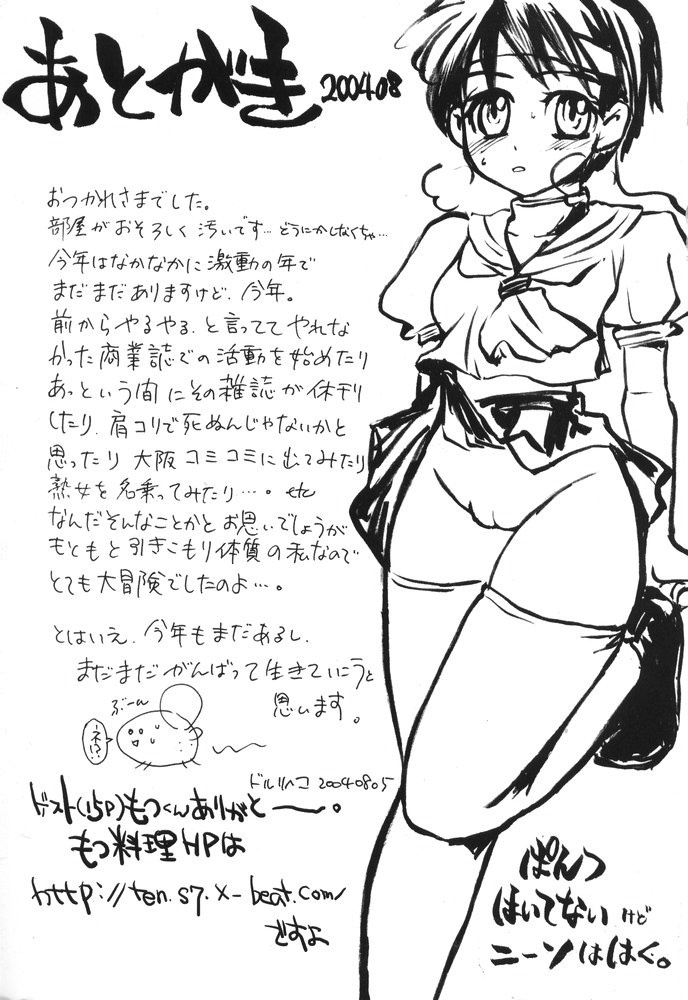 あとがき 2004.08
おつかれさまでした。
部屋がおそろしく汚いです…どうにかしなくちゃ…
今年はなかなかに激動の年で
まだまだありますけど、今年。
前からやるやる、と言っててやれな
かった商業誌での活動を始めたり
あっという間にその雑誌が休刊
したり、肩コリで死ぬんじゃないかと
思ったり 大阪コミコミに出てみたり
熟女を名乗ってみたり…。etc
なんだそんなことかとお思いでしょうが
もともと引きこもり体質の私なので
とても大冒険でしたのよ…。
とはいえ、今年もまだあるし、
まだまだがんばって生きていこうと
思います。
ぶーん
ドルリヘコ 20040805
ゲスト(15P)もつくんありがとーー。
もつ料理HPは
http://ten.s7.x-beat.com/
ですよ
ぱんつ
はいてないけど
ニーソははく。